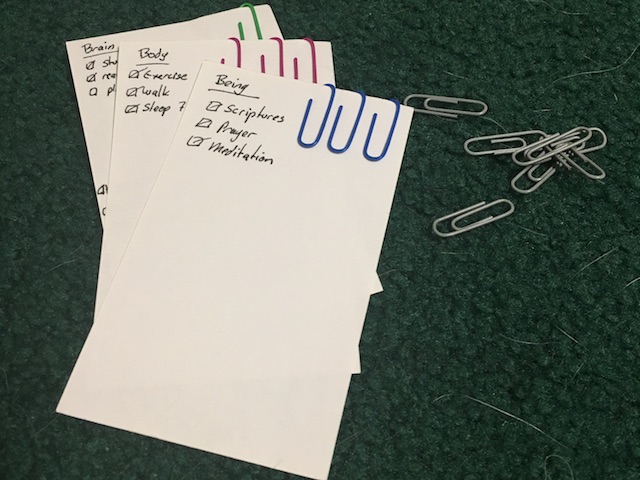 Brain
Body
Exercise
walk
Sleep 7
Being
Scriptures
Prayer
Meditation